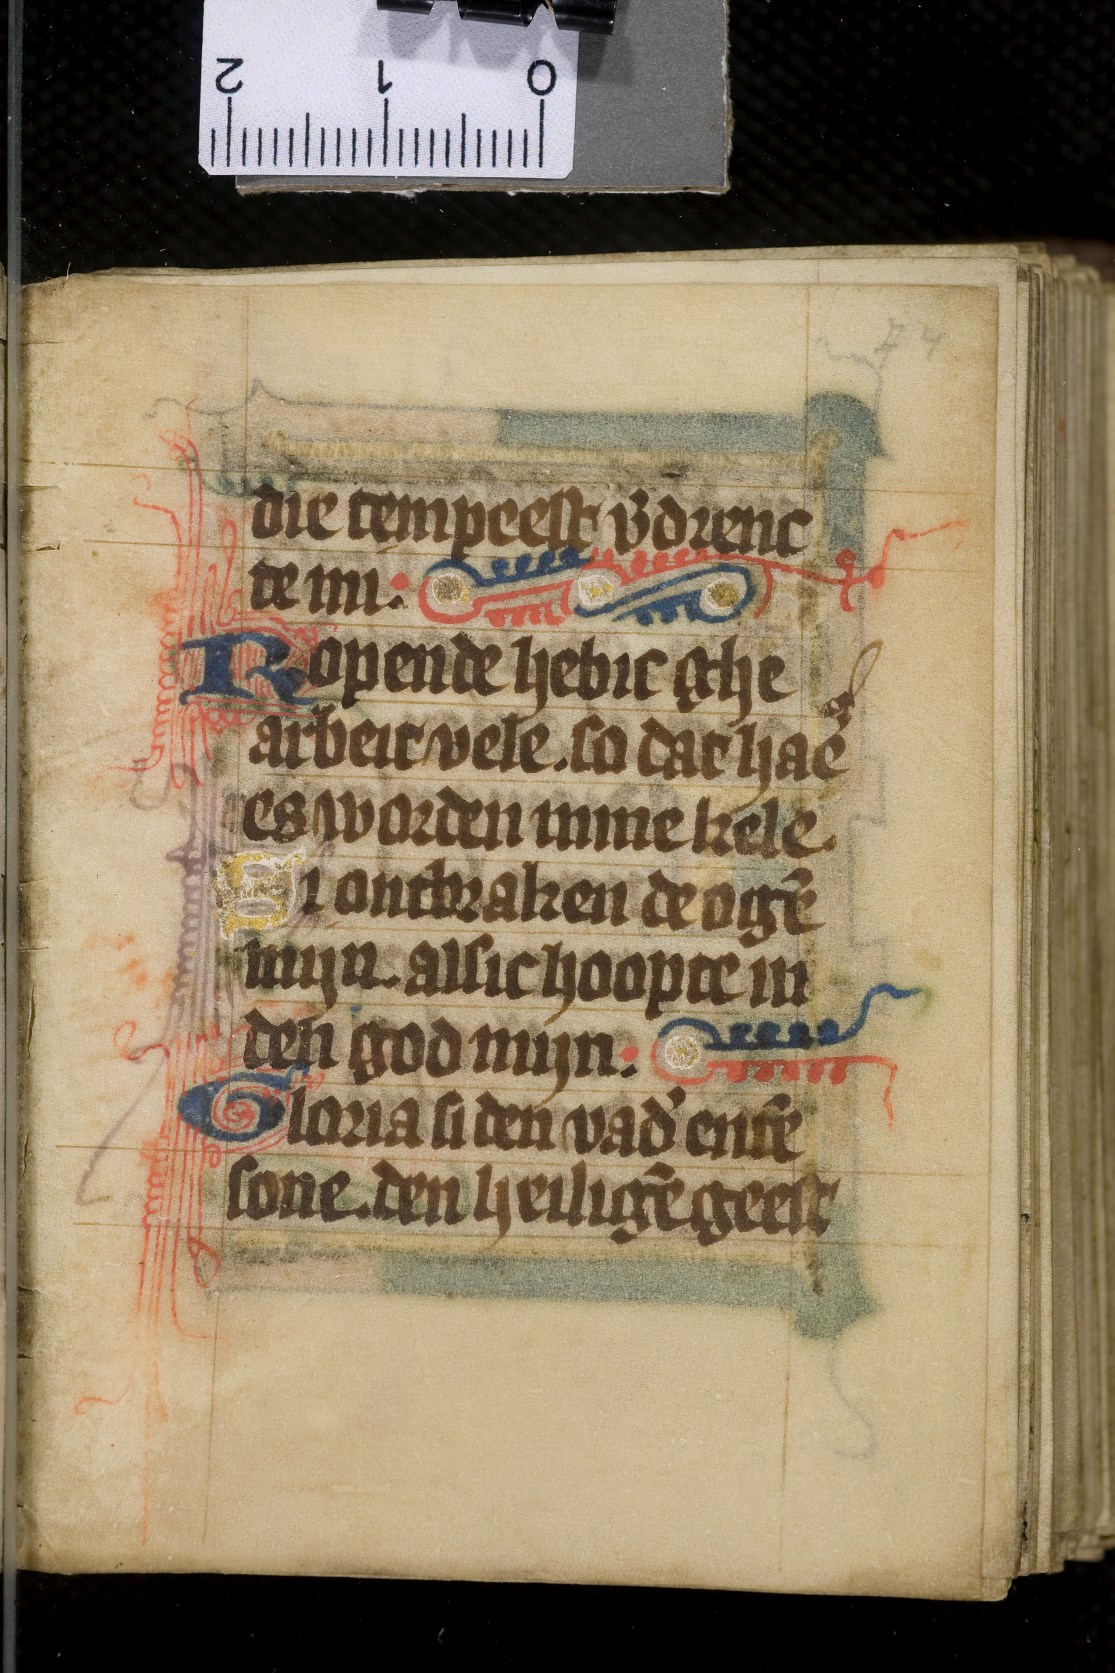 2 1 0
74
die tempeest v̄drenc
te mi.
Ropende hebic ghe
arbeit vele. so dat haē
es worden mine kele.
En ontbraken de ogē
mijn. alsic hoopte in
den god mijn.
Gloria si den vad' entē
sone. den heiligē geest